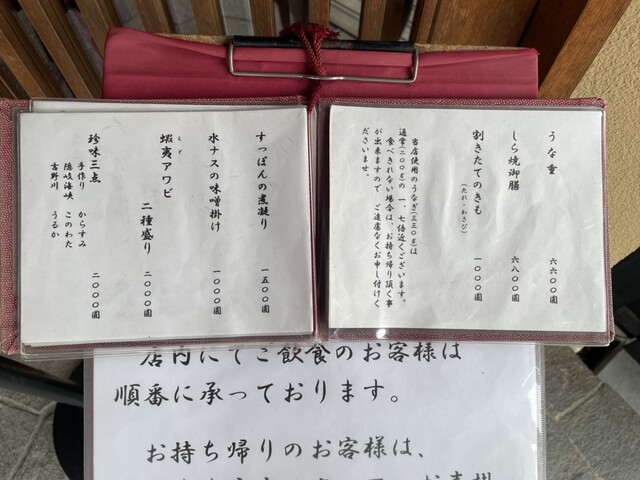 うな重 六六〇〇圓
しら焼御膳 六八〇〇圓
割きたてのきも 一〇〇〇圓
(たれ・わさび)
当店使用のうなぎ(三三〇g)は
通常(二〇〇g)の一、七倍近くございます。
食べきれない場合は、お持ち帰り頂く事
が出来ますので、ご遠慮なくお申し付けく
ださいませ。
すっぽんの煮凝り 一五〇〇圓
水ナスの味噌掛け 一〇〇〇圓
えぞ
蝦夷アワビ 二種盛り 二〇〇〇圓
珍味三点 二〇〇〇圓
手作り からすみ
隠岐海峡 このわた
吉野川 うるか
店内にてご飲食のお客様は
順番に承っております。
お持ち帰りのお客様は、